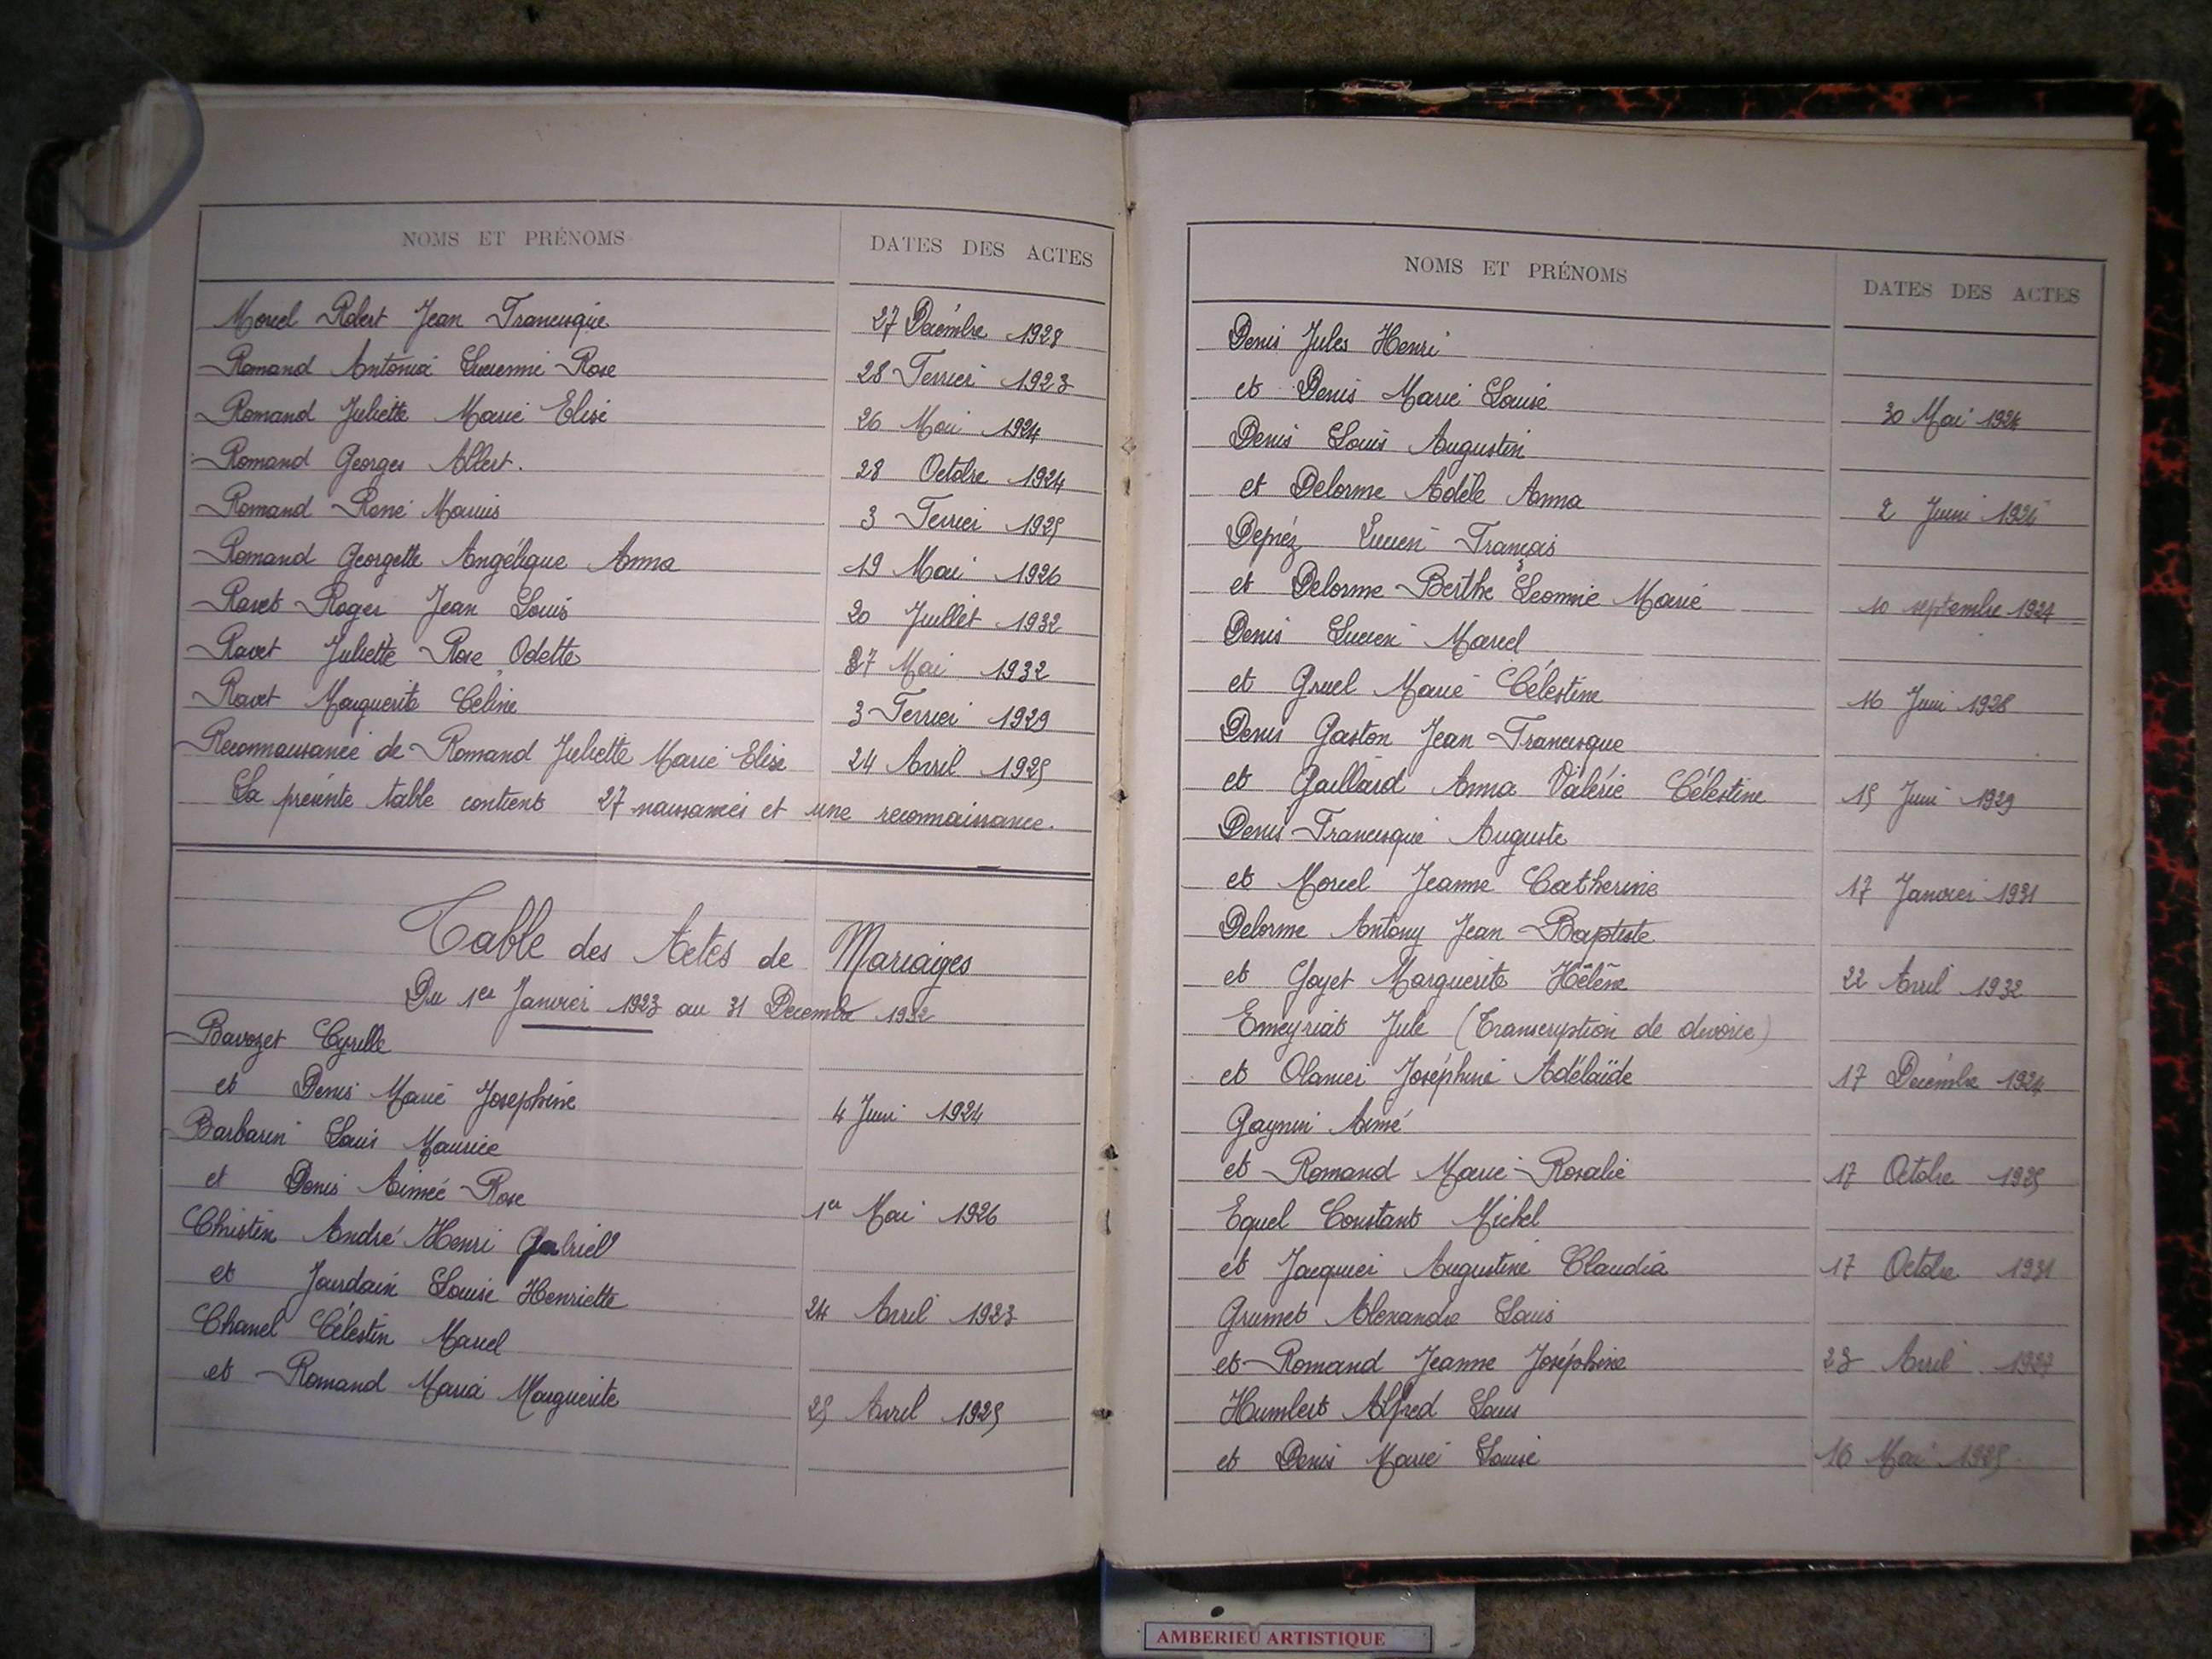 NOMS ET PRÉNOMS DATES DES ACTES
Morel Robert Jean Francisque 27 Décembre 1928
Romand Antonia Lucienne Rose 28 Février 1923
Romand Juliette Marie Elise 26 Mai 1924
Romand Georges Albert. 28 Octobre 1924
Romand René Marius 3 Février 1925
Romand Georgette Angélique Anna 19 Mai 1926
Ravet Roger Jean Louis 20 Juillet 1932
Ravet Juliette Rose Odette 27 Mai 1932
Ravet Marguerite Céline 3 Février 1929
Reconnaissance de Romand Juliette Marie Elise 24 Avril 1925
La présente table contient 27 naissances et une reconnaissance.
Table des Actes de Mariages
Du 1er Janvier 1923 au 31 Decembre 1932
Bavozet Cyrille
et Denis Marie Josephine 4 Juin 1924
Barbarin Louis Maurice
et Denis Aimée Rose 1er Mai 1926
Christin André Henri Gabriel
et Jourdain Louise Henriette 24 Avril 1923
Chanel Célestin Marcel
et Romand Maria Marguerite 25 Avril 1925
NOMS ET PRÉNOMS DATES DES ACTES
Denis Jules Henri
et Denis Marie Louise 30 Mai 1924
Denis Louis Augustin
et Delorme Adèle Anna 2 Juin
Depréz Lucien François
et Delorme Berthe Leonnie Marie 10 septembre 1924
Denis Lucien Marcel
et Gruel Marie Célestine 16 Juin 1928
Denis Gaston Jean Francisque
et Gaillard Anna Valérie Célestine 15 Juin 1929
Denis Francisque Auguste
et Morel Jeanne Catherine 17 Janvier 1931
Delorme Antony Jean Baptiste
et Goyet Marguerite Hélène 22 Avril 1932
Emeyriat Jule (Transcryption de divorce)
et Olanier Joséphine Adélaïde 17 Décembre 1924
Gaynin Aimé
et Romand Marie Rosalie 17 Octobre 1925
Equel Constant Michel
et Jacquier Augustine Claudia 17 Octobre 1931
Grumet Alexandre Louis
et Romand Jeanne Joséphine 23 Avril 1927
Humbert Alfred Louis
et Denis Marie Louise 16 Mai 1925
AMBERIEU ARTISTIQUE